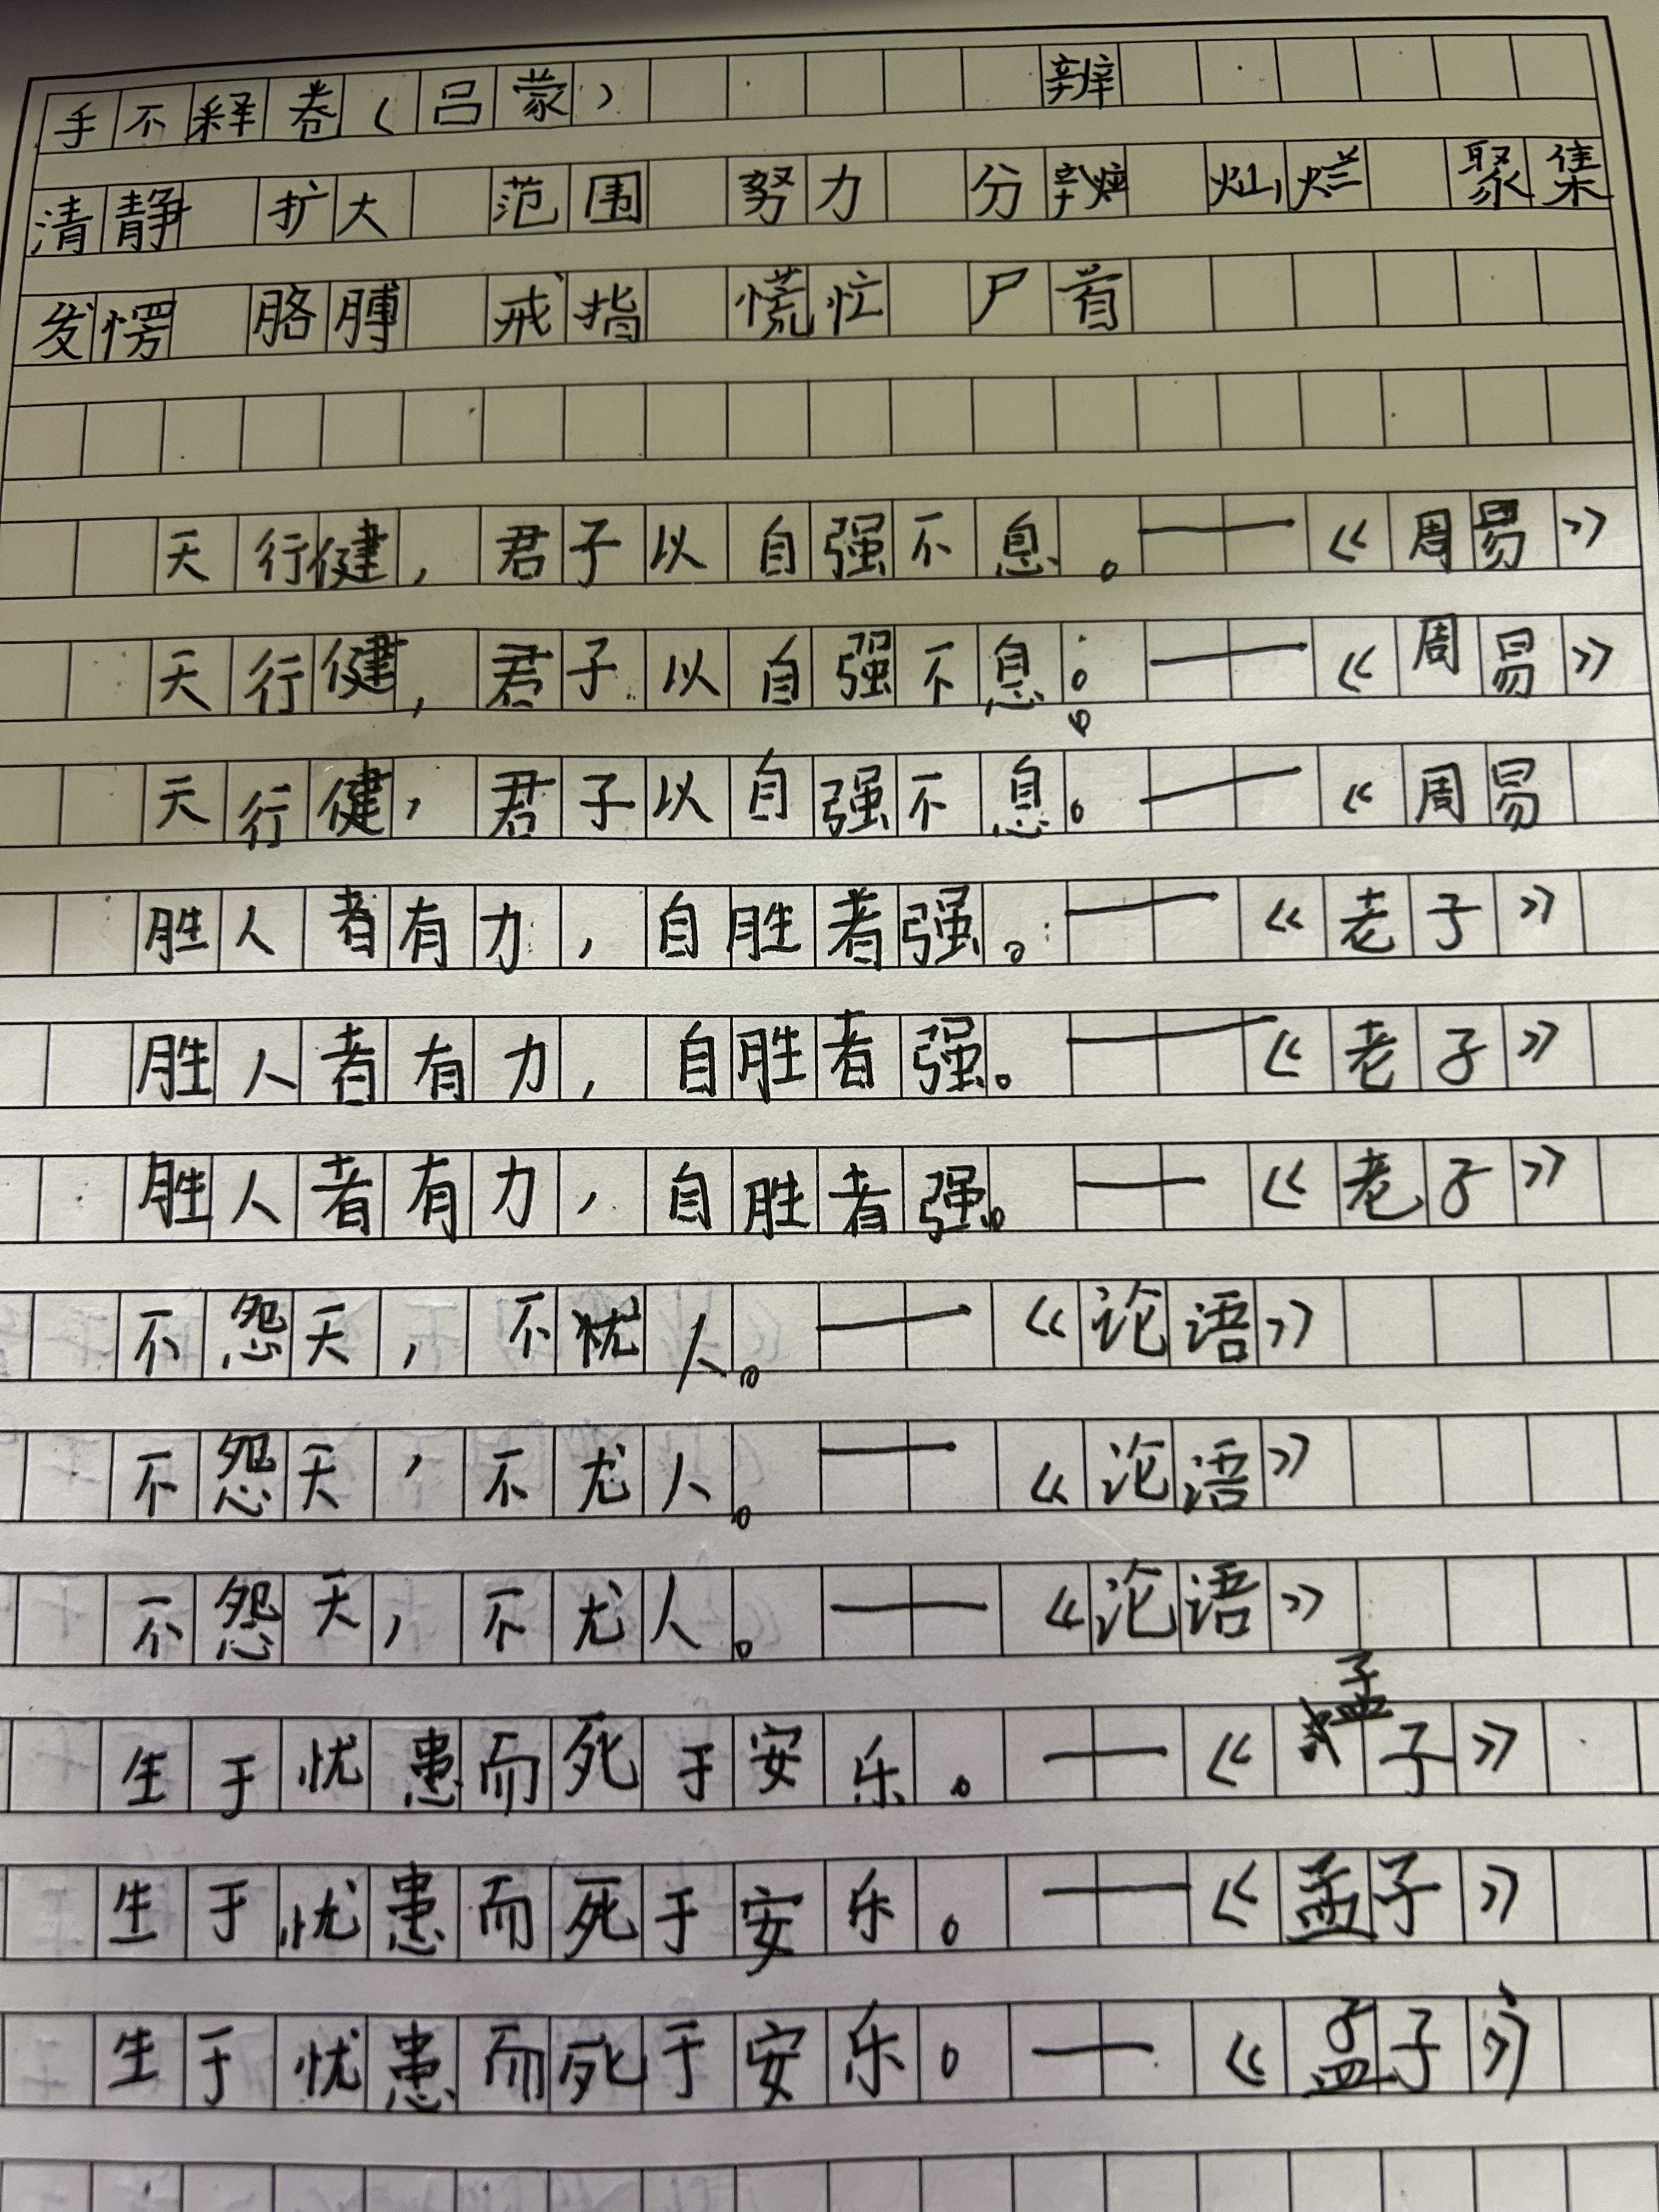 手不释卷（吕蒙） 辨
清静 扩大 范围 努力 分辨 灿烂 聚集
发愣 胳膊 戒指 慌忙 尸首
天行健，君子以自强不息。——《周易》
天行健，君子以自强不息。——《周易》
天行健，君子以自强不息。——《周易
胜人者有力，自胜者强。——《老子》
胜人者有力，自胜者强。——《老子》
胜人者有力，自胜者强。——《老子》
不怨天，不忧人。——《论语》
不怨天，不尤人。——《论语》
不怨天，不尤人。——《论语》
生于忧患而死于安乐。——《孟子》
生于忧患而死于安乐。——《孟子》
生于忧患而死于安乐。——《孟子》